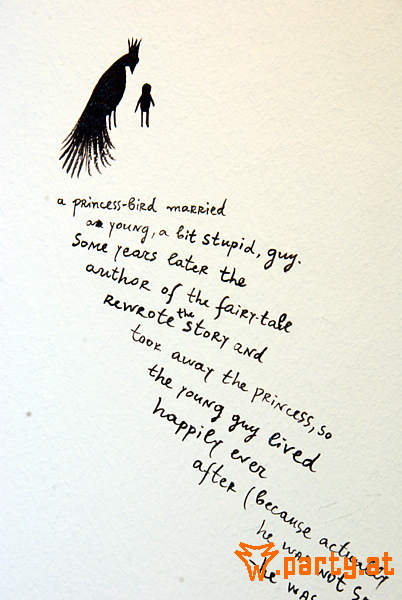 a princess-bird married
a young, a bit stupid, guy.
Some years later the
author of the fairy-tale
rewrote the story and
took away the princess, so
the young guy lived
happily ever
after (because actually
he was not
he was
party.at